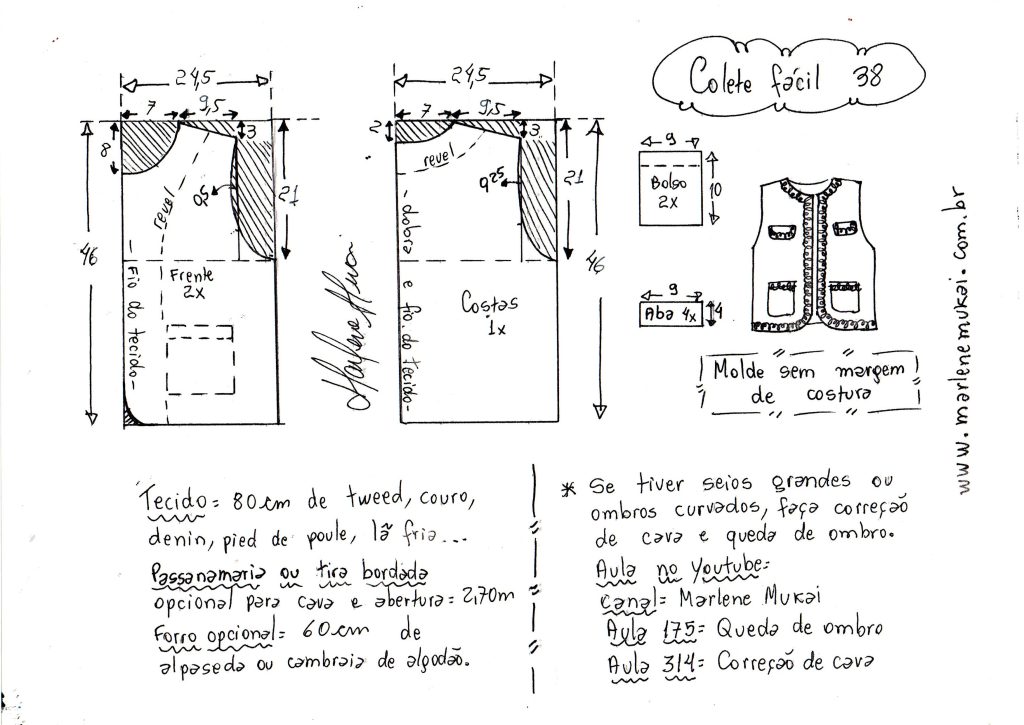 Colete fácil 38
24,5
7
9,5
3
8
0,25
21
46
revel
Frente
2x
- Fio do tecido -
24,5
7
9,5
3
2
0,25
21
46
revel
- dobra e fio do tecido -
Costas
1x
9
Bolso
2x
10
9
Aba 4x
4
Molde sem margem
de costura
www.marlenemukai.com.br
Tecido = 80 cm de tweed, couro,
denin, pied de poule, lã fria...
Passanamaria ou tira bordada
opcional para cava e abertura = 2,70m
Forro opcional = 60 cm de
alpaseda ou cambraia de algodão.
* Se tiver seios grandes ou
ombros curvados, faça correção
de cava e queda de ombro.
Aula no Youtube =
canal = Marlene Mukai
Aula 175 = Queda de ombro
Aula 314 = Correção de cava